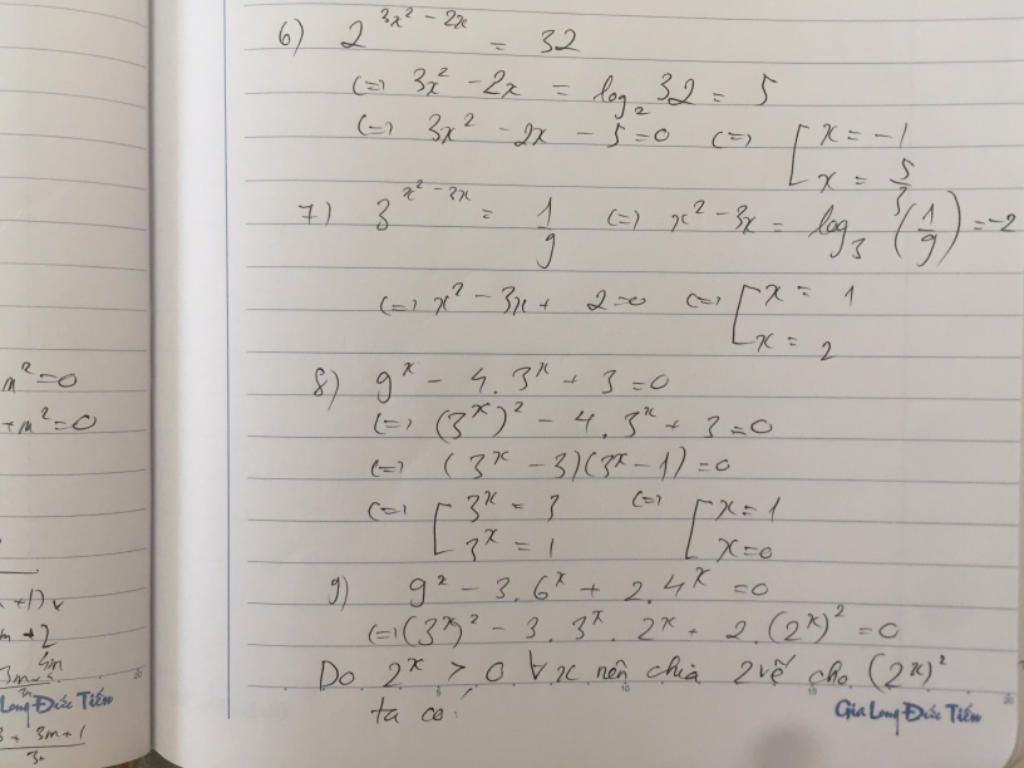 m² = 0
+m² = 0
+1)x
m + 2
Long Đức Tiến
3m + 1
6) 2^(3x² - 2x) = 32
(=) 3x² - 2x = log₂ 32 = 5
(=) 3x² - 2x - 5 = 0 (=) [ x = -1
x = 5/3
7) 3^(x² - 3x) = 1/9 (=) x² - 3x = log₃ (1/9) = -2
(=) x² - 3x + 2 = 0 (=) [ x = 1
x = 2
8) 9^x - 4.3^x + 3 = 0
(=) (3^x)² - 4.3^x + 3 = 0
(=) (3^x - 3)(3^x - 1) = 0
(=) [ 3^x = 3 (=) [ x = 1
3^x = 1 x = 0
9) 9^x - 3.6^x + 2.4^x = 0
(=) (3^x)² - 3.3^x.2^x + 2.(2^x)² = 0
Do 2^x > 0 ∀x nên chia 2 vế cho (2^x)²
ta có:
Gia Long Đức Tiến